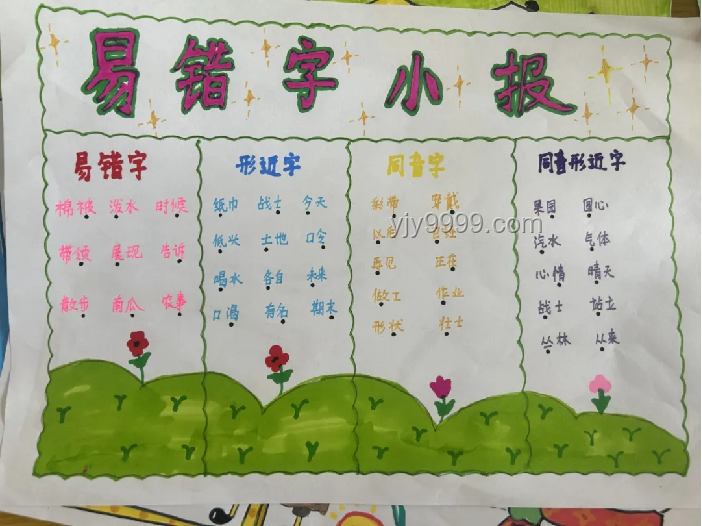 易错字小报
易错字
棉被 泼水 时候
带领 展现 告诉
散步 南瓜 故事
形近字
纸巾 战士 今天
纸兴 土地 口令
喝水 各自 未来
口渴 有名 期末
同音字
彩带 穿戴
以后
再见 正在
做工 作业
形状 壮士
同音形近字
果园 圆心
汽水 气体
心情 晴天
战士 站立
丛林 从来
yjy9999.com